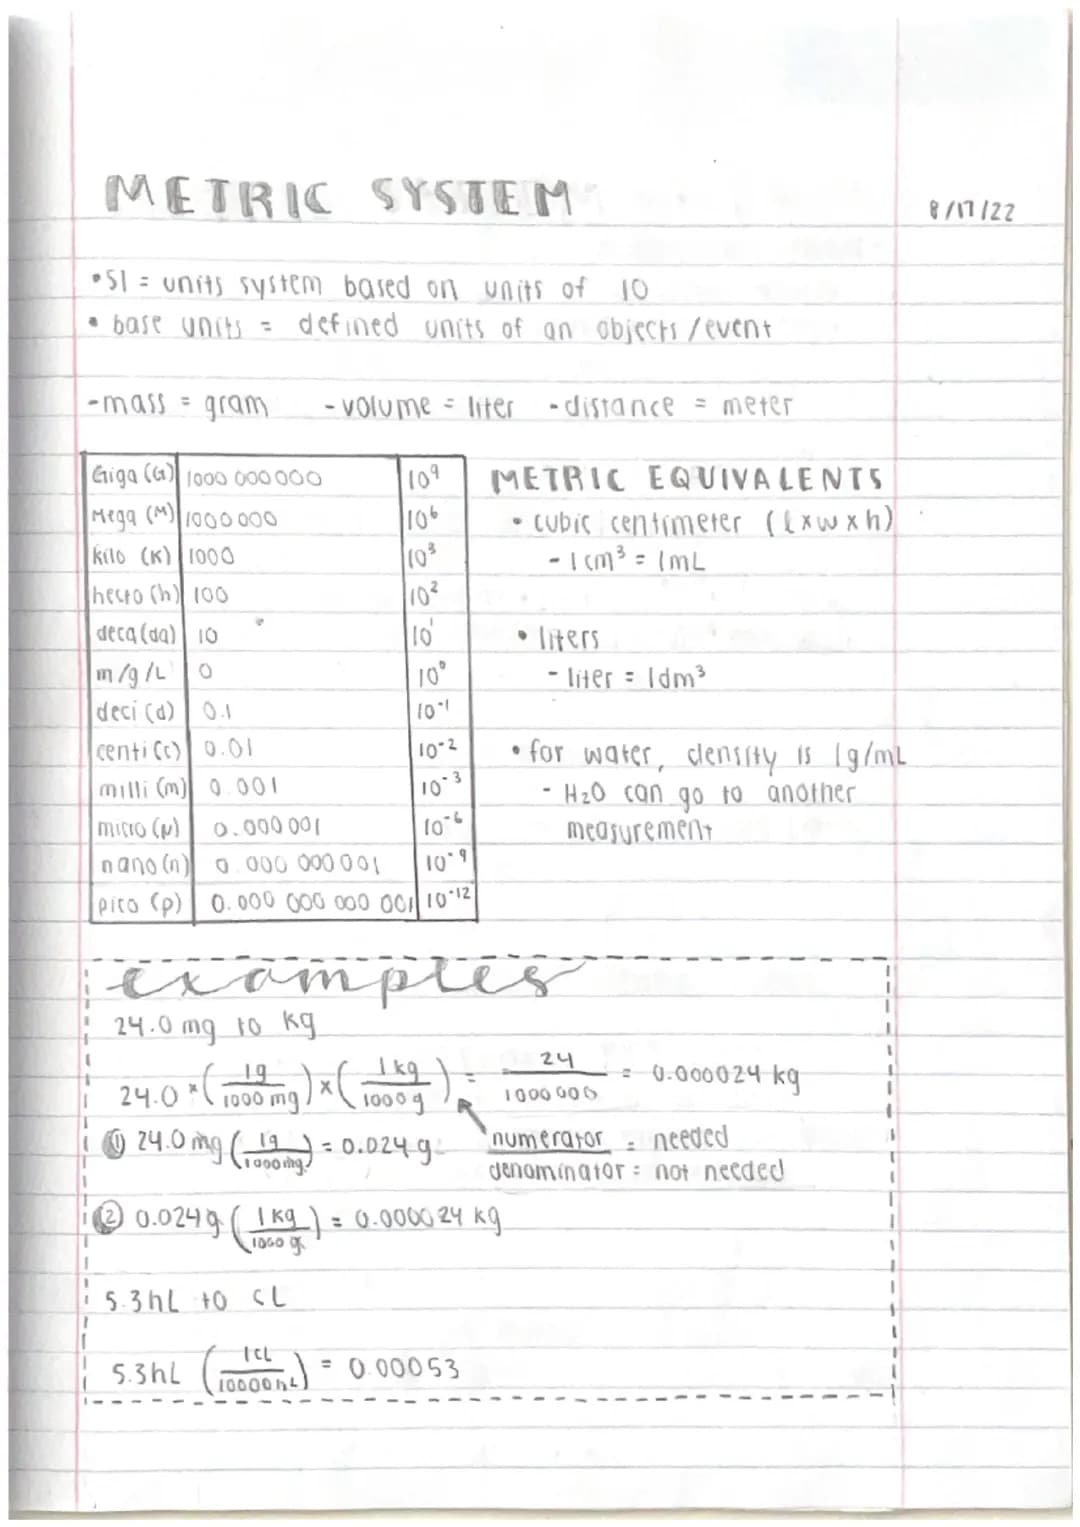 METRIC SYSTEM
8/17/22
•SI = units system based on units of 10
• base units = defined units of an objects/event
-mass = gram -volume = liter -distance = meter
Giga (G) 1000 000000 10⁹
Mega (M) 1000000 10⁶
kilo (K) 1000 10³
hecto (h) 100 10²
deca (da) 10 10¹
m/g/L 0 10⁰
deci (d) 0.1 10⁻¹
centi (c) 0.01 10⁻²
milli (m) 0.001 10⁻³
micro (μ) 0.000001 10⁻⁶
nano (n) 0.000 000 001 10⁻⁹
pico (p) 0.000 000 000 001 10⁻¹²
METRIC EQUIVALENTS
• cubic centimeter (l x w x h)
- 1 cm³ = 1mL
• liters
- liter = 1dm³
• for water, density is 1g/mL
- H₂O can go to another
measurement
examples
24.0 mg to kg
24.0 × (1g / 1000 mg) × (1 kg / 1000 g) = 24 / 1000000 = 0.000024 kg
① 24.0 mg (1g / 1000mg) = 0.024 g
numerator = needed
denominator = not needed
② 0.024 g (1 kg / 1000 g) = 0.000024 kg
5.3 hL to cL
5.3 hL (1cL / 10000 hL) = 0.00053